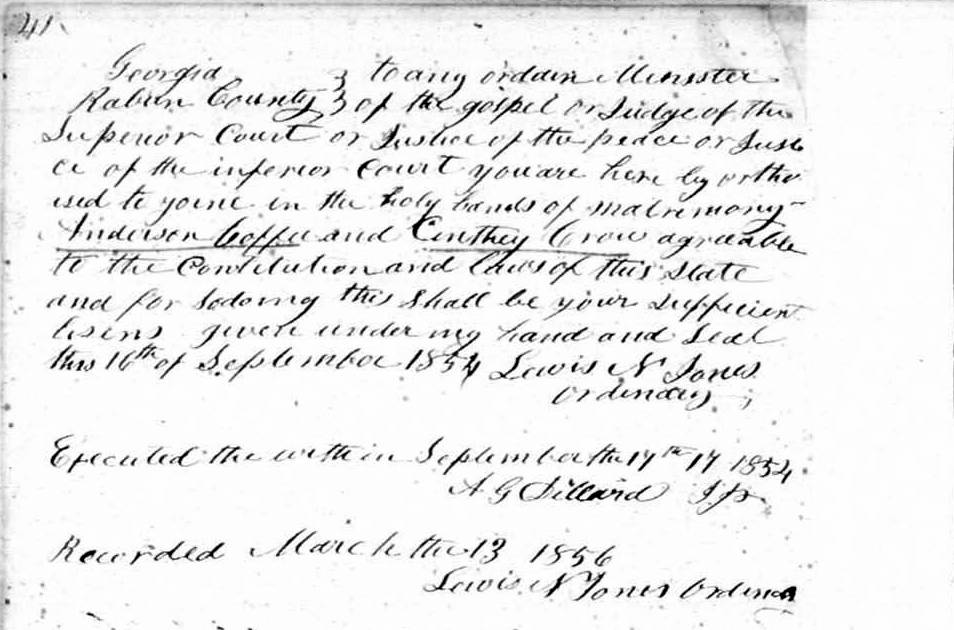 41
Georgia } to any ordain Minister
Rabun County } of the gospel or Judge of the
Superior Court or Justice of the peace or Justi
ce of the inferior Court you are here by ortho
ised to joine in the holy bands of matrimony
Anderson Coffee and Cinthey Crow agreable
to the Constitution and laws of this State
and for sodoing this shall be your sufficient
lisens given under my hand and Seal
this 16th of September 1854 Lewis N Jones
Ordinary
Executed the within September the 17th 17 1854
A G Dillard J.P.
Recorded March the 13 1856
Lewis N Jones Ordinary